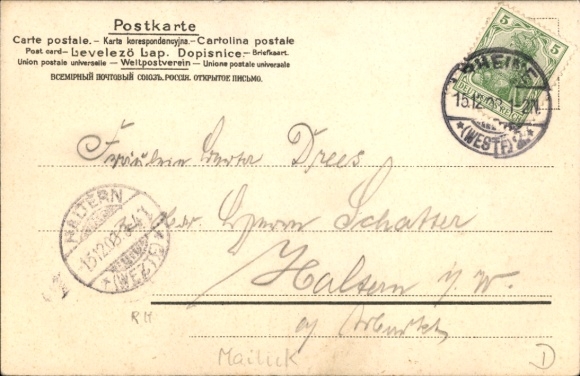 Postkarte
Carte postale. – Karta korespondencyjna. – Cartolina postale
Post card – Levelező Lap. Dopisnice. – Briefkaart.
Union postale universelle – Weltpostverein – Unione postale universale
ВСЕМІРНЫЙ ПОЧТОВЫЙ СОЮЗЪ. РОССІЯ. ОТКРЫТОЕ ПИСЬМО.
5 5
DEUTSCHES REICH
RHEINE
15.12.03. 1-2N.
*(WESTF.) 2.*
Fräulein Berta Drees
Herrn Schatter
Haltern i/W.
HALTERN
15.12.03
*(WESTF.)*
RH
D